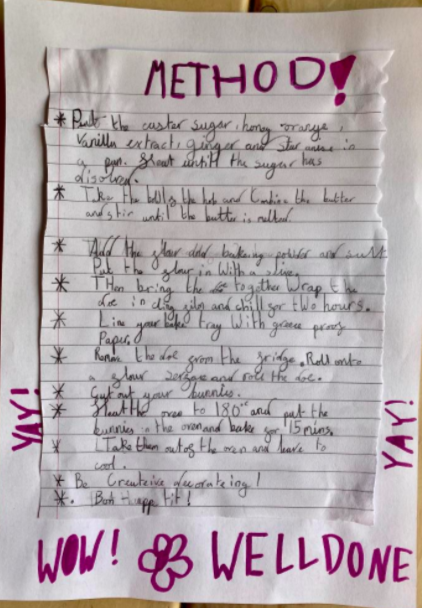 METHOD!
* Put the caster sugar, honey orange,
Vanilla extract, ginger and star anise in
a pan. Heat untill the sugar has
disolved.
* Take the off the hob and Combine the butter
and stir until the butter is melted.
* Add the flour and baking powder and
Put the flour in With a sive.
* THen bring the doe together Wrap the
doe in cling film and chill for tWo hours.
* Line your bake tray With greece proof
Paper.
* the doe from the fridge. Roll onto
a flour and roll the doe.
* Cut out your bunnies.
* Heat the oven to 180° and put the
bunnies in the oven and bake for 15 mins.
* Take them out of the oven and leave to
cool.
* Be Creative decorateing!
*.
YAY!
YAY!
WOW! WELLDONE